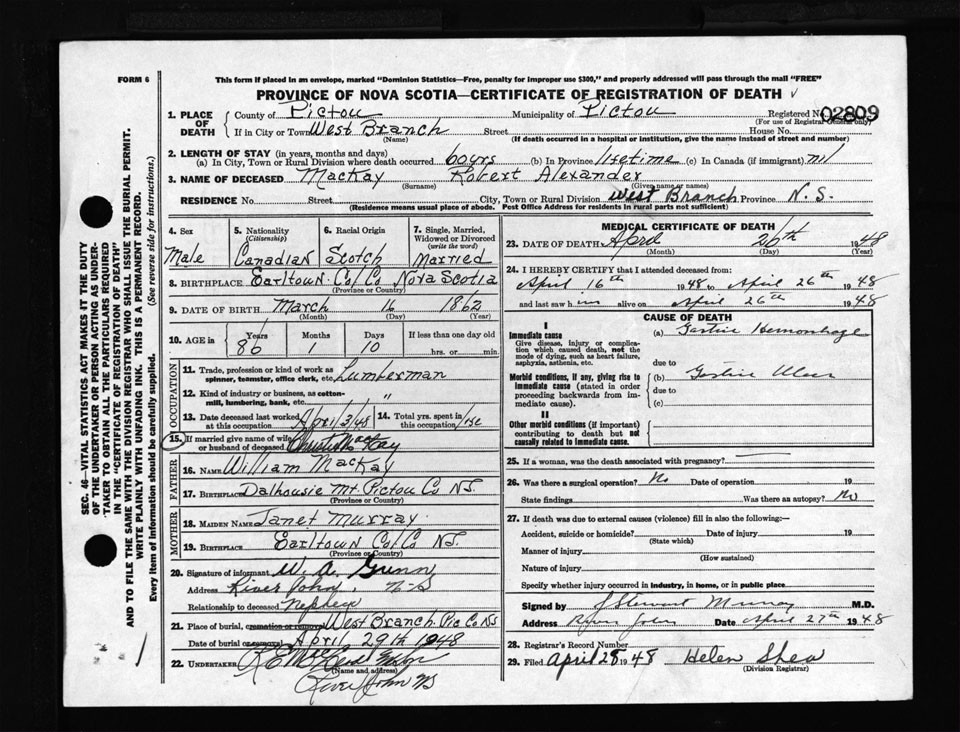 FORM 6
This form if placed in an envelope, marked "Dominion Statistics—Free, penalty for improper use $300," and properly addressed will pass through the mail "FREE"
PROVINCE OF NOVA SCOTIA—CERTIFICATE OF REGISTRATION OF DEATH
1. PLACE OF DEATH County of Pictou Municipality of Pictou Registered No. 02809
(For use of Registrar General only)
If in City or Town West Branch Street House No.
(Name) (If death occurred in a hospital or institution, give the name instead of street and number)
2. LENGTH OF STAY (in years, months and days)
(a) In City, Town or Rural Division where death occurred 60 yrs (b) In Province lifetime (c) In Canada (if immigrant) nil
3. NAME OF DECEASED MacKay Robert Alexander
(Surname) (Given name or names)
RESIDENCE No. Street City, Town or Rural Division West Branch Province N.S.
(Residence means usual place of abode. Post Office Address for residents in rural parts not sufficient)
4. Sex Male
5. Nationality (Citizenship) Canadian
6. Racial Origin Scotch
7. Single, Married, Widowed or Divorced (write the word) Married
8. BIRTHPLACE Earltown Col Co Nova Scotia
(Province or Country)
9. DATE OF BIRTH March 16 1862
(Month) (Day) (Year)
10. AGE in Years 86 Months Days 10 If less than one day old
hrs. or min.
OCCUPATION
11. Trade, profession or kind of work as spinner, teamster, office clerk, etc. Lumberman
12. Kind of industry or business, as cotton-mill, lumbering, bank, etc. "
13. Date deceased last worked at this occupation April /3/48
14. Total yrs. spent in this occupation life
15. If married give name of wife or husband of deceased MacKay
FATHER
16. NAME William MacKay
17. BIRTHPLACE Dalhousie Mt. Pictou Co NS.
(Province or Country)
MOTHER
18. MAIDEN NAME Janet Murray
19. BIRTHPLACE Earltown Col Co NS.
(Province or Country)
20. Signature of informant W. A. Gunn
Address River John, N-S
Relationship to deceased Nephew
21. Place of burial, cremation or removal West Branch Pic Co NS
Date of burial or removal April 29th 1948
22. UNDERTAKER
(Name and address)
River John NS
MEDICAL CERTIFICATE OF DEATH
23. DATE OF DEATH April 26th 1948
(Month) (Day) (Year)
24. I HEREBY CERTIFY that I attended deceased from
April 16th 1948 to April 26th 1948
and last saw him alive on April 26th 1948
CAUSE OF DEATH
I
Immediate cause (a) Gastric Hemorrhage
Give disease, injury or complication which caused death, not the mode of dying, such as heart failure, asphyxia, asthenia, etc.
due to
Morbid conditions, if any, giving rise to immediate cause (stated in order proceeding backwards from immediate cause).
(b) Gastric Ulcer
due to
(c)
II
Other morbid conditions (if important) contributing to death but not causally related to immediate cause.
25. If a woman, was the death associated with pregnancy?
26. Was there a surgical operation? No Date of operation 19
State findings Was there an autopsy? No
27. If death was due to external causes (violence) fill in also the following:—
Accident, suicide or homicide? Date of injury 19
(State which)
Manner of injury
(How sustained)
Nature of injury
Specify whether injury occurred in industry, in home, or in public place
Signed by J Stewart Murray M.D.
Address River John Date April 27th 1948
28. Registrar's Record Number
29. Filed April 28 1948 Helen Shea
(Division Registrar)
SEC. 46—VITAL STATISTICS ACT MAKES IT THE DUTY
OF THE UNDERTAKER OR PERSON ACTING AS UNDER-
TAKER TO OBTAIN ALL THE PARTICULARS REQUIRED
IN THE "CERTIFICATE OF REGISTRATION OF DEATH"
AND TO FILE THE SAME WITH THE DIVISION REGISTRAR WHO SHALL ISSUE THE BURIAL PERMIT.
WRITE PLAINLY WITH UNFADING INK. THIS IS A PERMANENT RECORD.
Every item of information should be carefully supplied. (See reverse side for instructions.)